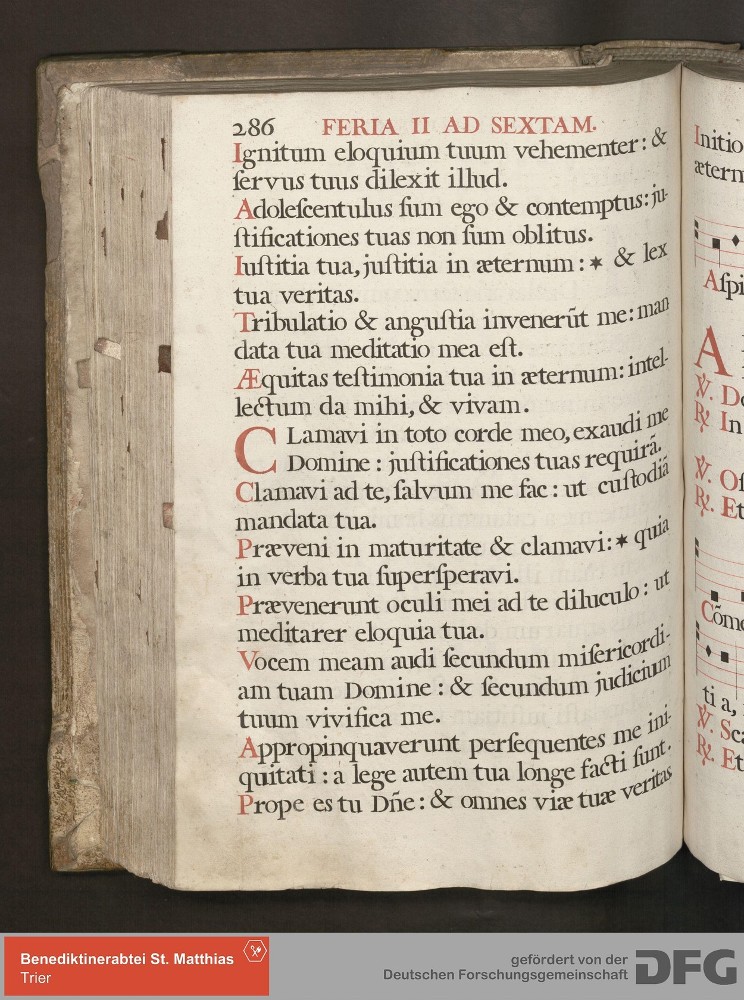 286 FERIA II AD SEXTAM.
Ignitum eloquium tuum vehementer: &
ſervus tuus dilexit illud.
Adoleſcentulus ſum ego & contemptus: ju-
ſtificationes tuas non ſum oblitus.
Iuſtitia tua, juſtitia in æternum: ✶ & lex
tua veritas.
Tribulatio & anguſtia invenerũt me: man
data tua meditatio mea eſt.
Æquitas teſtimonia tua in æternum: intel-
lectum da mihi, & vivam.
CLamavi in toto corde meo, exaudi me
Domine: juſtificationes tuas requirã.
Clamavi ad te, ſalvum me fac: ut cuſtodiã
mandata tua.
Præveni in maturitate & clamavi: ✶ quia
in verba tua ſuperſperavi.
Prævenerunt oculi mei ad te diluculo: ut
meditarer eloquia tua.
Vocem meam audi ſecundum miſericordi-
am tuam Domine: & ſecundum judicium
tuum vivifica me.
Appropinquaverunt perſequentes me ini-
quitati: a lege autem tua longe facti ſunt.
Prope es tu Dñe: & omnes viæ tuæ veritas
Initio
ætern
Aſpi
A
℣. Do
℟. In
℣. Oſ
℟. Et
Cõme
ti a,
℣. Sca
℟. Et
Benediktinerabtei St. Matthias
Trier
gefördert von der
Deutschen Forschungsgemeinschaft
DFG